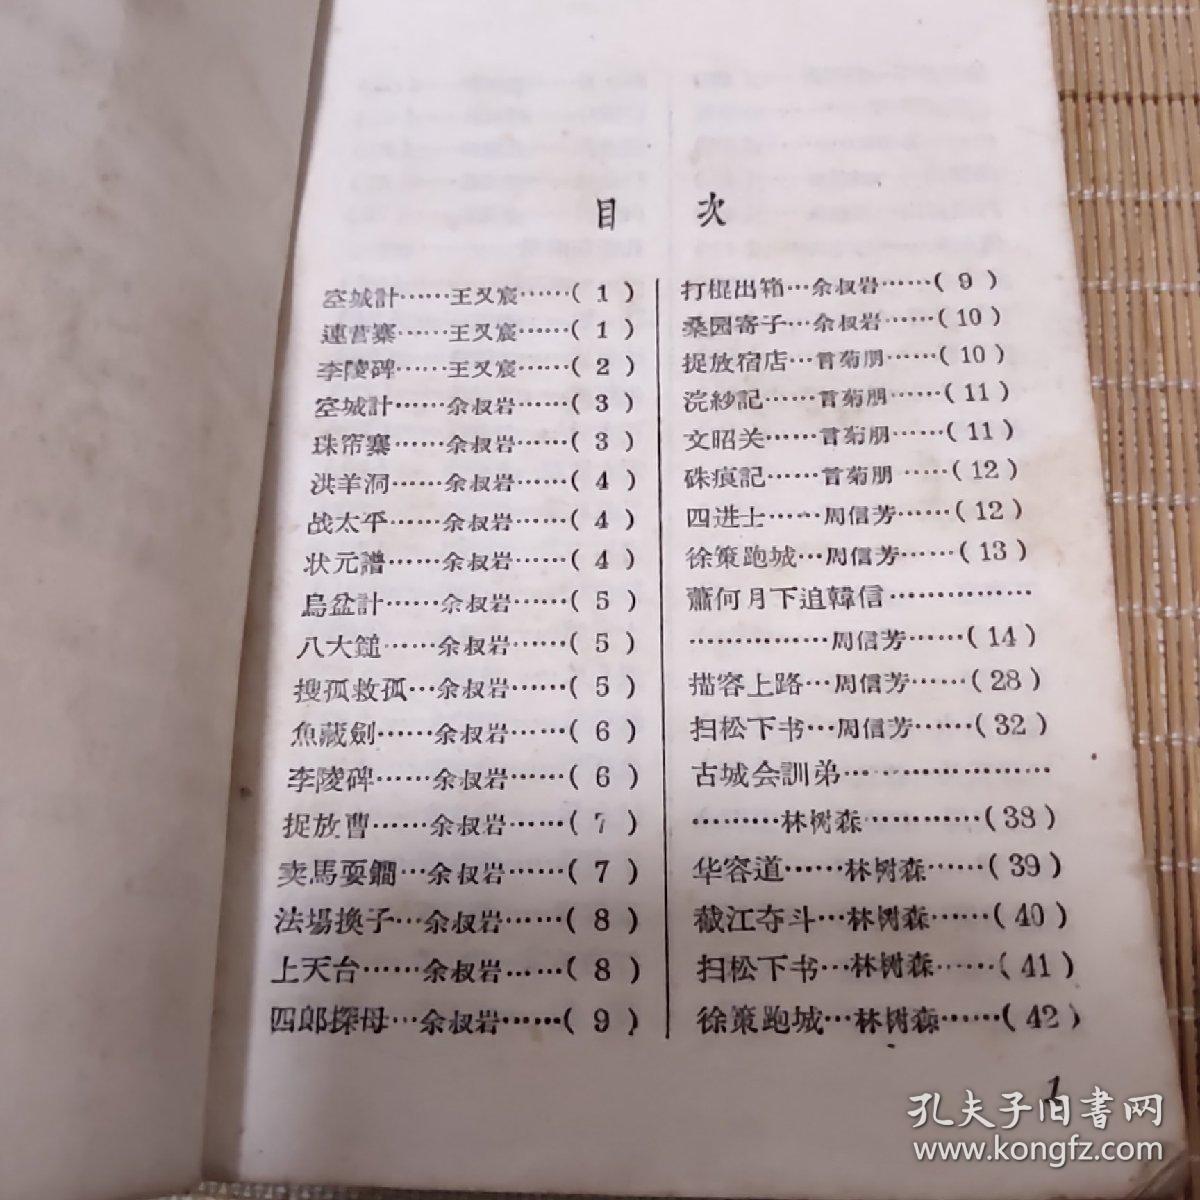 目 次
空城計……王又宸……( 1 )
連营寨……王又宸……( 1 )
李陵碑……王又宸……( 2 )
空城計……余叔岩……( 3 )
珠帘寨……余叔岩……( 3 )
洪羊洞……余叔岩……( 4 )
战太平……余叔岩……( 4 )
状元譜……余叔岩……( 4 )
烏盆計……余叔岩……( 5 )
八大鎚……余叔岩……( 5 )
搜孤救孤…余叔岩……( 5 )
魚藏劍……余叔岩……( 6 )
李陵碑……余叔岩……( 6 )
捉放曹……余叔岩……( 7 )
卖馬耍鐧…余叔岩……( 7 )
法場換子…余叔岩……( 8 )
上天台……余叔岩……( 8 )
四郎探母…余叔岩……( 9 )
打棍出箱…余叔岩……( 9 )
桑园寄子…余叔岩……(10)
捉放宿店…言菊朋……(10)
浣紗記……言菊朋……(11)
文昭关……言菊朋……(11)
硃痕記……言菊朋……(12)
四进士……周信芳……(12)
徐策跑城…周信芳……(13)
蕭何月下追韓信……………
……………周信芳……(14)
描容上路…周信芳……(28)
扫松下书…周信芳……(32)
古城会訓弟…………………
………林树森…………(38)
华容道……林树森……(39)
截江夺斗…林树森……(40)
扫松下书…林树森……(41)
徐策跑城…林树森……(42)
1
孔夫子旧書网
www.kongfz.com